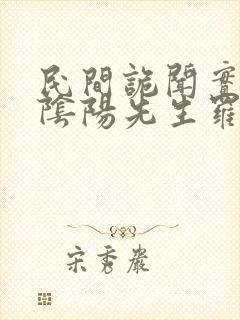 民間詭聞實
陰陽先生羅
宋秀巖